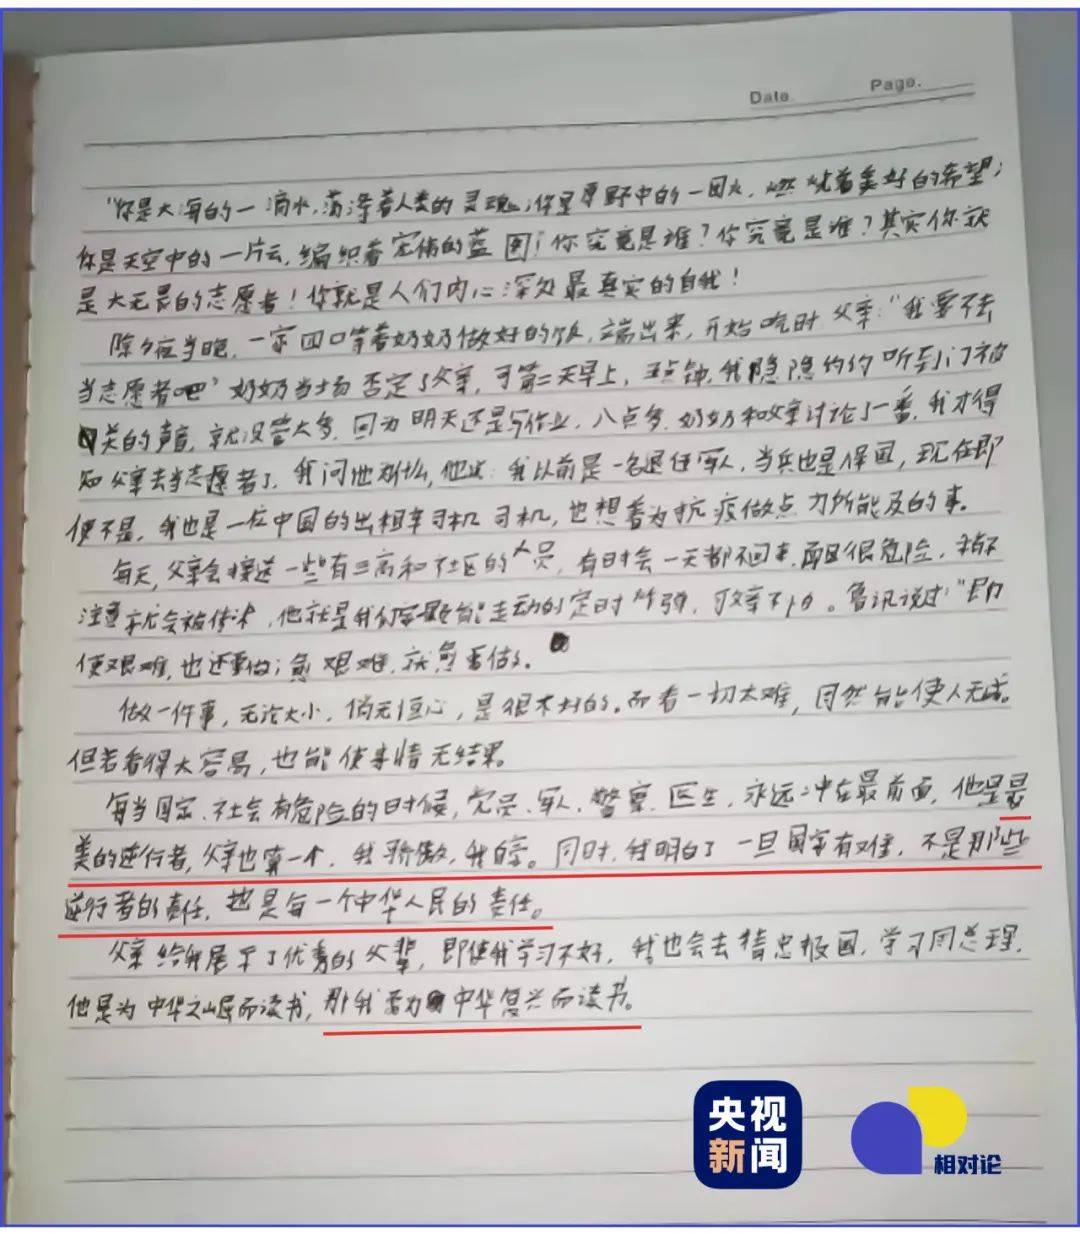 Date.
Page.
"你是大海的一滴水,荡涤着人类的灵魂;你是原野中的一团火,燃烧着美好的希望;
你是天空中的一片云,编织着宏伟的蓝图;你究竟是谁?你究竟是谁?其实你就
是大无畏的志愿者!你就是人们内心深处最真实的自我!
除夕夜当晚,一家四口等着奶奶做好的饭,端出来,开始吃时,父亲:"我要不去
当志愿者吧"奶奶当场否定了父亲,可第二天早上,五点钟,我隐隐约约听到门被
关的声音,就没管太多,因为明天还是写作业,八点多,奶奶和父亲讨论了一番,我才得
知父亲去当志愿者了,我问他为什么,他说:我以前是一名退伍军人,当兵也是保国,现在即
便不是,我也是一位中国的出租车司机司机,也想着为抗疫做点力所能及的事。
每天,父亲会接送一些有三高和社区的人员,有时会一天都不回来,而且很危险,稍不
注意就会被传染,他就是我们家能走动的定时炸弹,可父亲不怕。鲁迅说过:"即
使艰难,也还要做;愈艰难,就愈要做。
做一件事,无论大小,倘无恒心,是很不好的。而看一切太难,固然能使人无成。
但若看得太容易,也能使事情无结果。
每当国家、社会有危险的时候,党员、军人、警察、医生,永远冲在最前面,他是最
美的逆行者,父亲也算一个,我骄傲,我自豪。同时,我明白了一旦国家有难,不是那些
逆行者的责任,也是每一个中华人民的责任。
父亲给我展示了优秀的父辈,即使我学习不好,我也会去精忠报国,学习周总理,
他是为中华之崛起而读书,那我要为中华复兴而读书。
央视
新闻
相对论